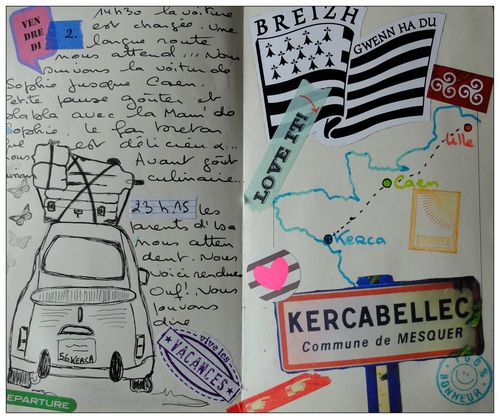 VEN
DRE
DI
2.
14h30 la voiture
est chargée. Une
longue route
nous attend... Nous
suivons la voiture de
Sophie jusque Caen.
Petite pause goûter et
blabla avec la Mam' de
Sophie. le far breton
est délicieux...
Avant goût
culinaire...
23h15 les
parents d'Isa
nous atten
dent. Nous
voici rendues
Ouf!. Nous
pouvons
dire
vive les
VACANCES
56KERCA
DEPARTURE
BREIZH
GWENN HA DU
LOVE IT!
Lille
Caen
Kerca
SUMMER
KERCABELLEC
Commune de MESQUER
100%
BONHEUR